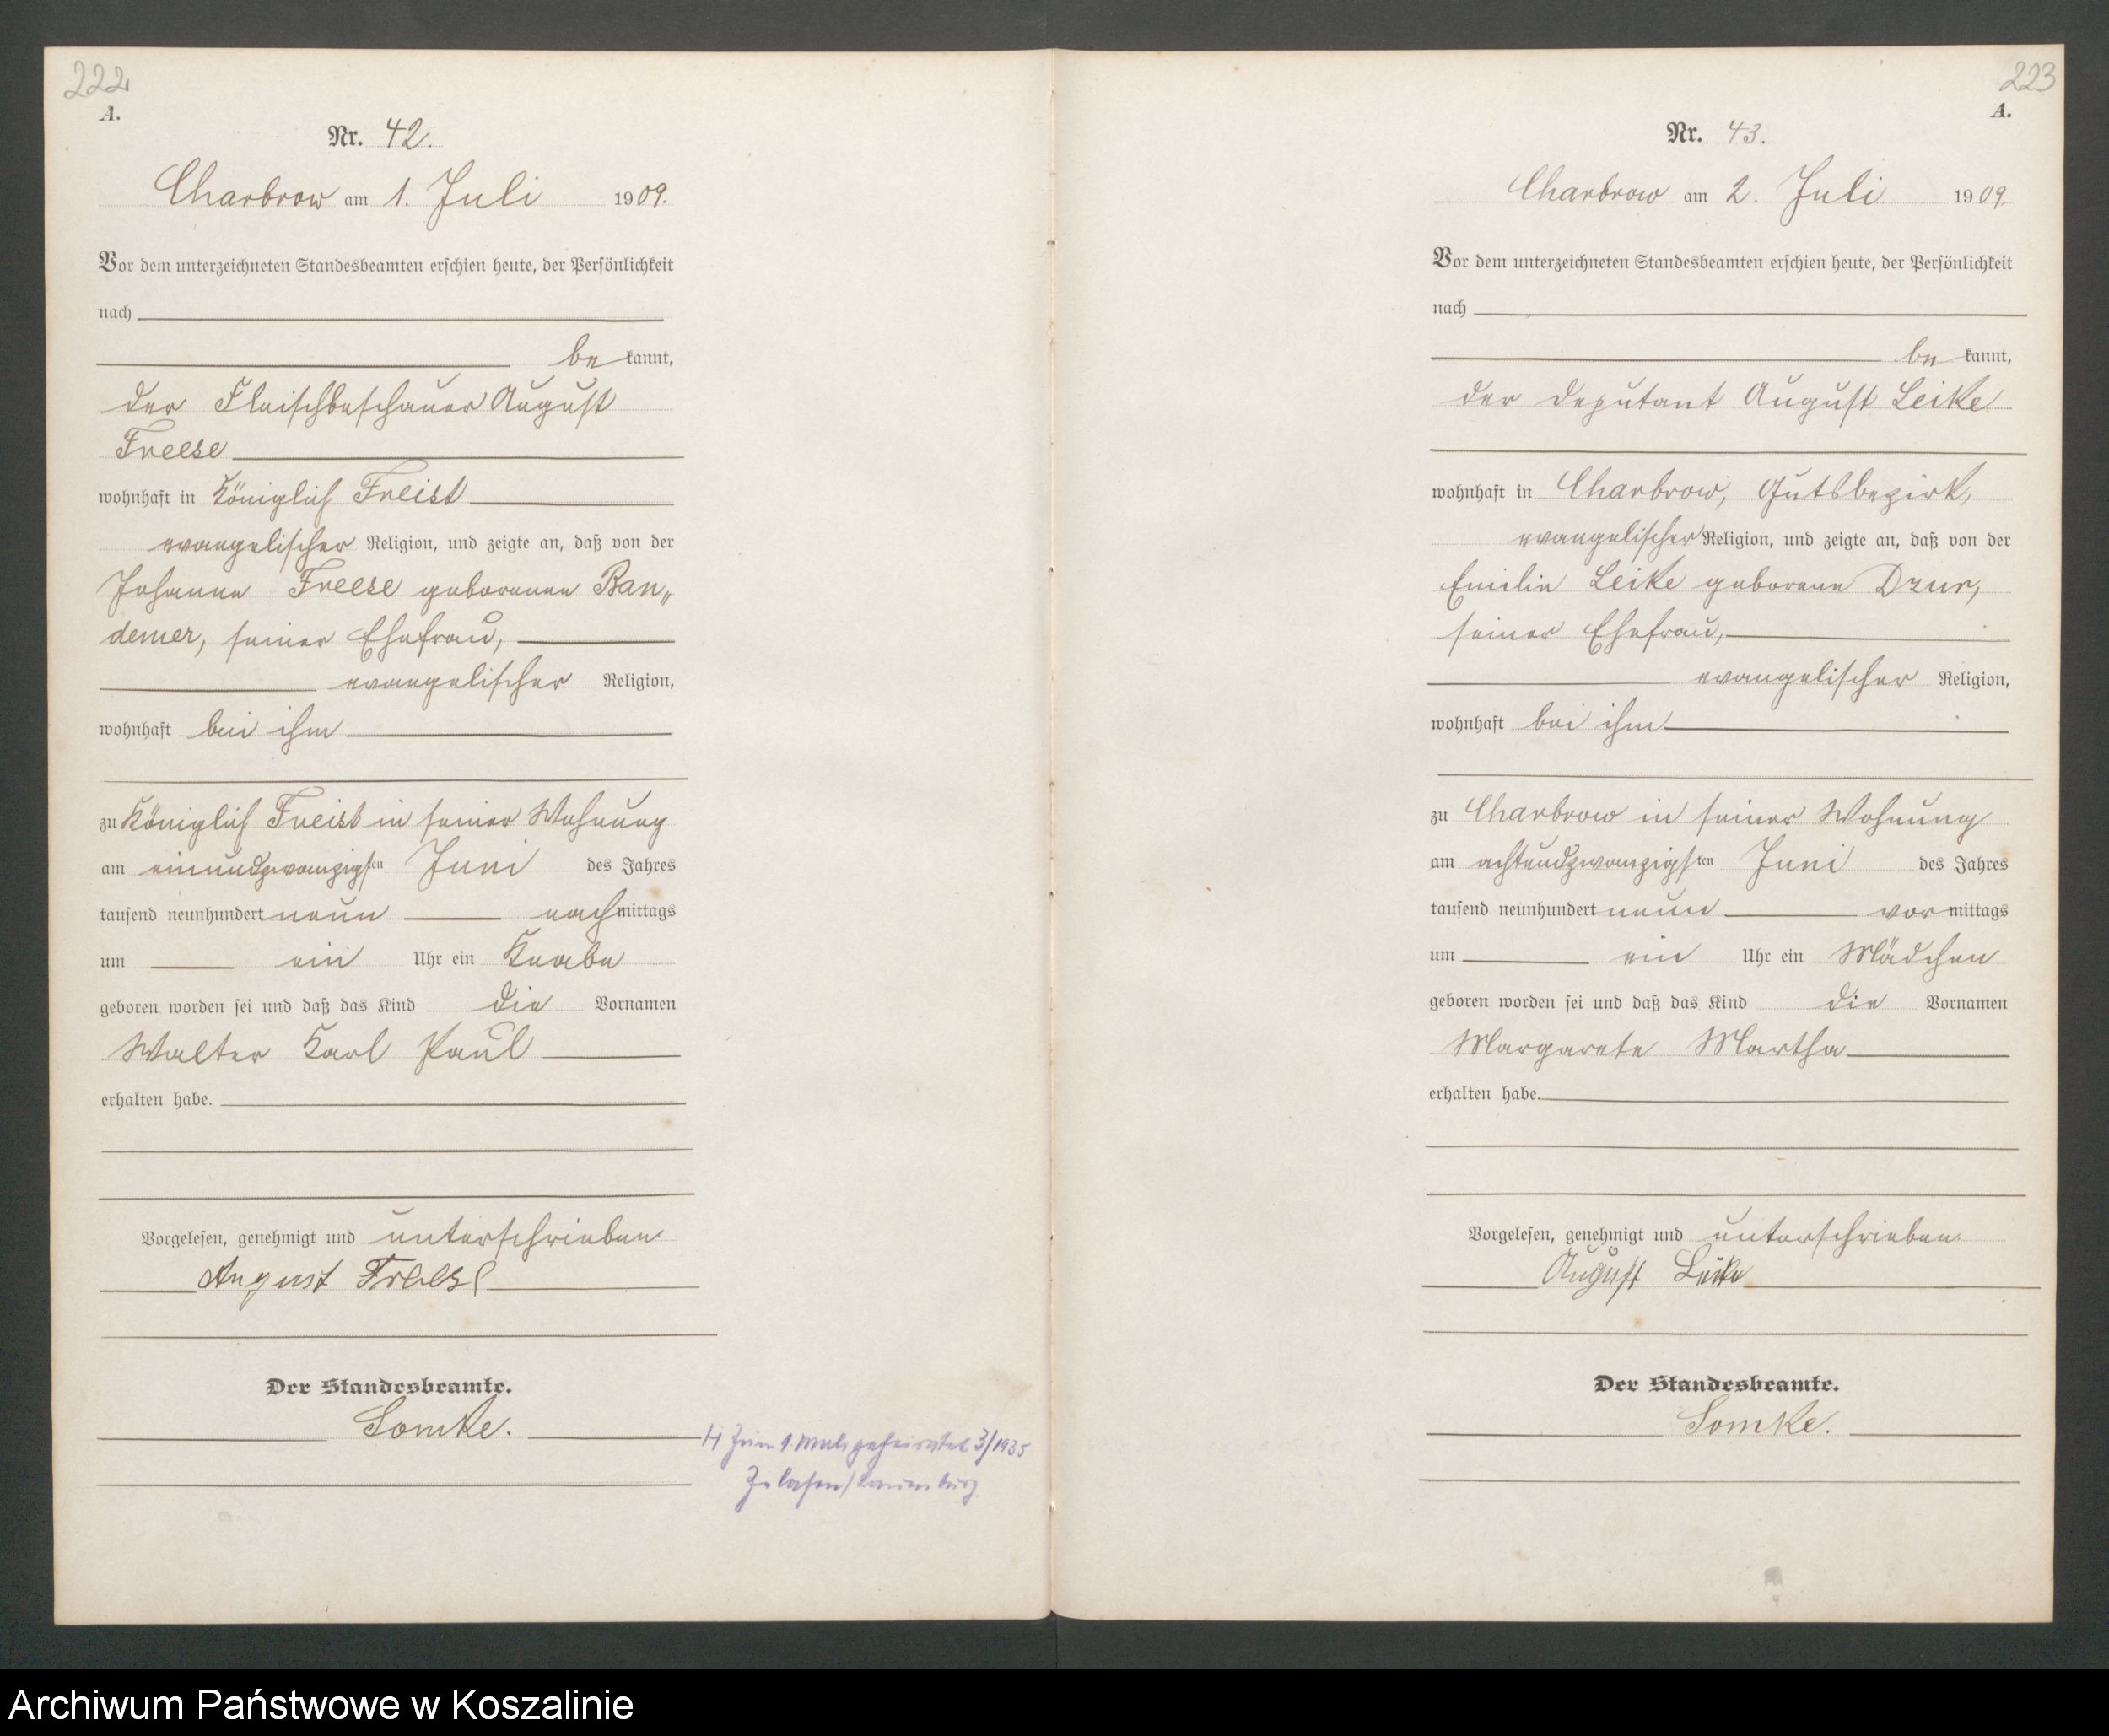 222
A.
Nr. 42.
Charbrow am 1. Juli 1909.
Vor dem unterzeichneten Standesbeamten erschien heute, der Persönlichkeit
nach
bekannt,
der Fleischbeschauer August
Freese
wohnhaft in Königlich Freist
evangelischer Religion, und zeigte an, daß von der
Johanne Freese geborenen Ban„
demer, seiner Ehefrau,
evangelischer Religion,
wohnhaft bei ihm
zu Königlich Freist in seiner Wohnung
am einundzwanzigsten Juni des Jahres
tausend neunhundert neun nachmittags
um ein Uhr ein Knabe
geboren worden sei und daß das Kind die Vornamen
Walter Karl Paul
erhalten habe.
Vorgelesen, genehmigt und unterschrieben
August Freese
Der Standesbeamte.
Somke.
H Zum 1. Mal geheiratet 3/1935
Zelasen/Lauenburg.
223
A.
Nr. 43.
Charbrow am 2. Juli 1909.
Vor dem unterzeichneten Standesbeamten erschien heute, der Persönlichkeit
nach
bekannt,
der Deputant August Leike
wohnhaft in Charbrow, Gutsbezirk,
evangelischer Religion, und zeigte an, daß von der
Emilie Leike geborene Dzur,
seiner Ehefrau,
evangelischer Religion,
wohnhaft bei ihm
zu Charbrow in seiner Wohnung
am achtundzwanzigsten Juni des Jahres
tausend neunhundert neun vormittags
um ein Uhr ein Mädchen
geboren worden sei und daß das Kind die Vornamen
Margarete Martha
erhalten habe.
Vorgelesen, genehmigt und unterschrieben
August Leike
Der Standesbeamte.
Somke.
Archiwum Państwowe w Koszalinie